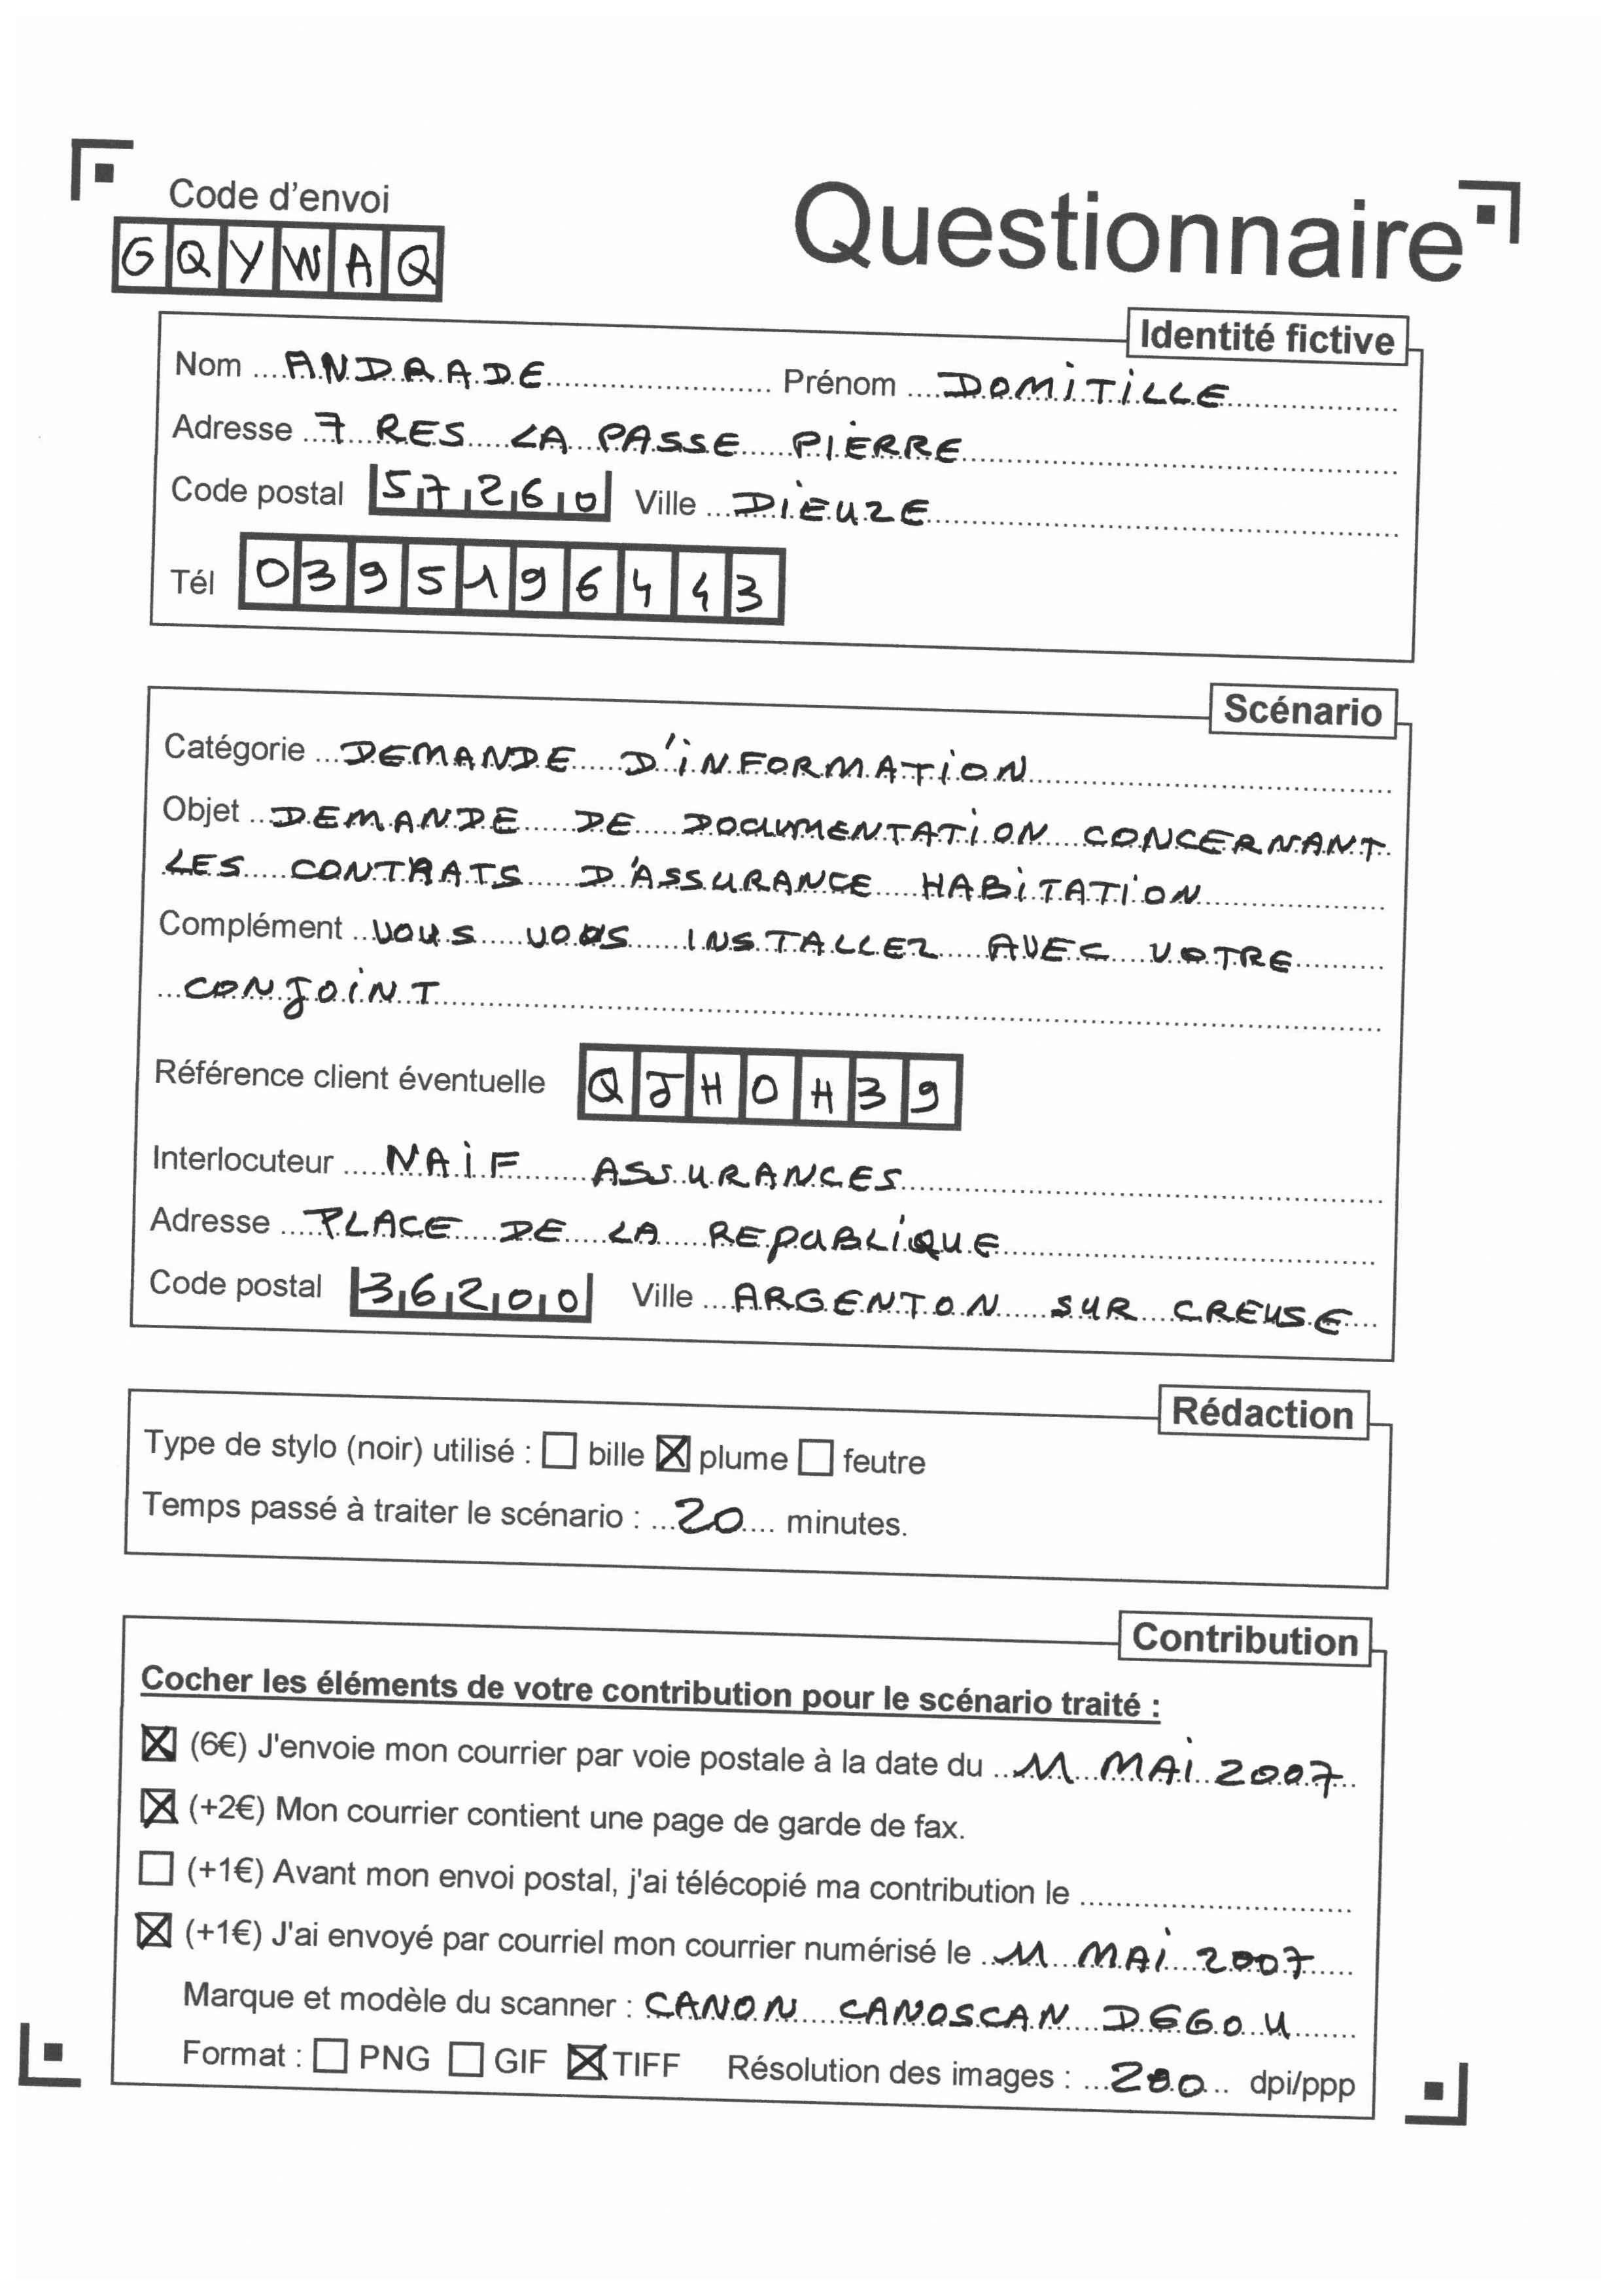 Code d'envoi
Questionnaire
GQYWAQ
Identité fictive
Nom ANDRADE Prénom DOMITILLE
Adresse 7 RES LA PASSE PIERRE
Code postal 57260 Ville DIEUZE
Tél 0395196443
Scénario
Catégorie DEMANDE D'INFORMATION
Objet DEMANDE DE DOCUMENTATION CONCERNANT
LES CONTRATS D'ASSURANCE HABITATION
Complément VOUS VOUS INSTALLEZ AVEC VOTRE
CONJOINT
Référence client éventuelle QJHOH39
Interlocuteur NAIF ASSURANCES
Adresse PLACE DE LA REPUBLIQUE
Code postal 36200 Ville ARGENTON SUR CREUSE
Rédaction
Type de stylo (noir) utilisé : ☐ bille ☒ plume ☐ feutre
Temps passé à traiter le scénario : 20 minutes.
Contribution
Cocher les éléments de votre contribution pour le scénario traité :
☒ (6€) J'envoie mon courrier par voie postale à la date du 11 MAI 2007
☒ (+2€) Mon courrier contient une page de garde de fax.
☐ (+1€) Avant mon envoi postal, j'ai télécopié ma contribution le
☒ (+1€) J'ai envoyé par courriel mon courrier numérisé le 11 MAI 2007
Marque et modèle du scanner : CANON CANOSCAN D660U
Format : ☐ PNG ☐ GIF ☒ TIFF Résolution des images : dpi/ppp